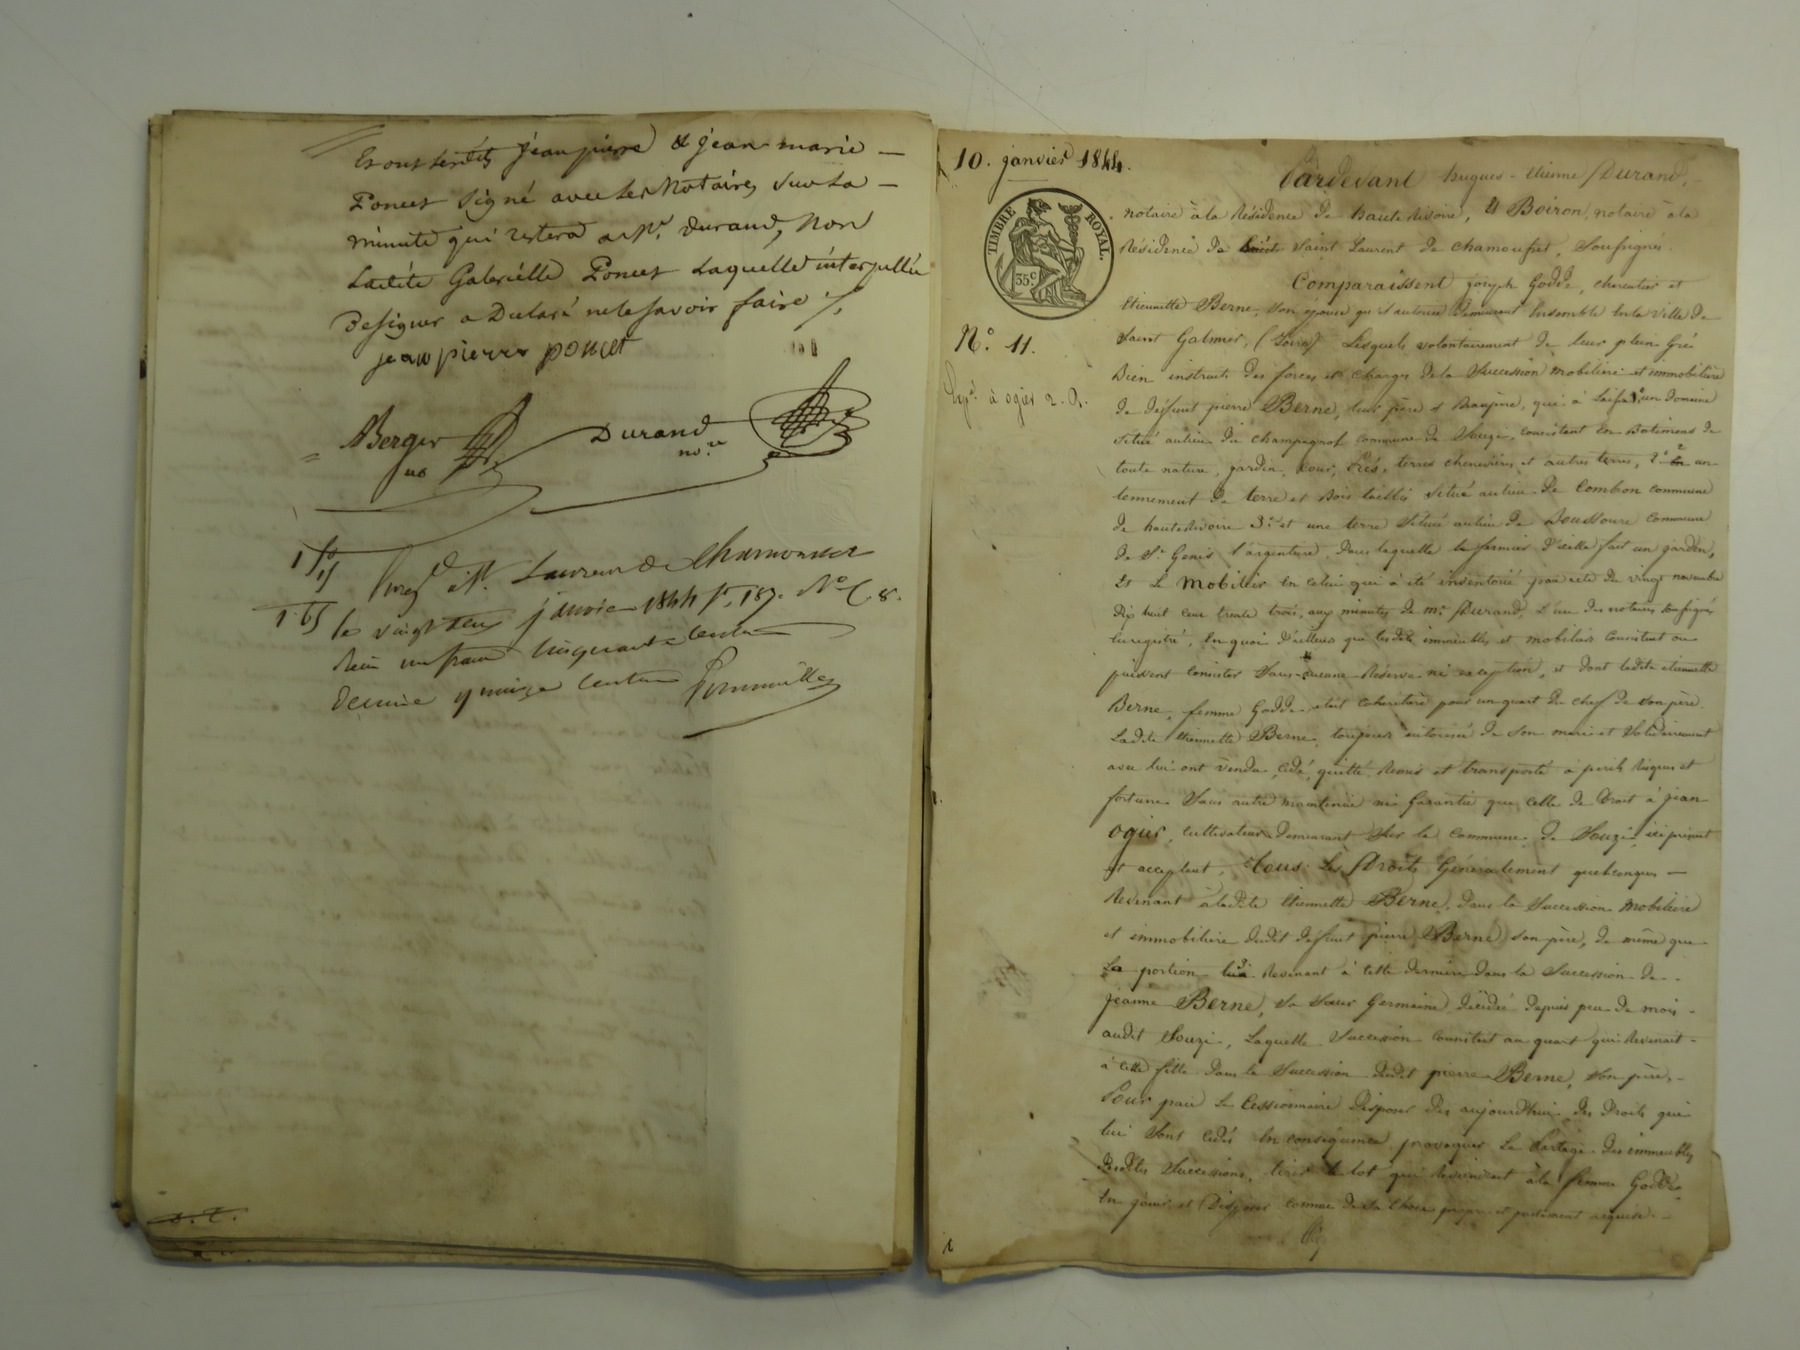 Et ont lesdits jean pierre & jean-marie
Poncet signé avec les Notaires sur la
minute qui restera à Me. Durand, Non
Ladite Gabrielle Poncet Laquelle interpellée
De signer a Déclaré ne le savoir faire
jean pierre poncet
Berger
Durand
no.re
St. Laurent de Chamousset
le vingt deux janvier 1844 fo. 187. No. C. 8.
Reçu un franc cinquante centimes
Décime quinze centimes
10. janvier 1844.
TIMBRE ROYAL.
35 C.
No. 11.
Exp. à ogier
Pardevant hugues-étienne Durand,
notaire à la Résidence de hauterivoire, Et Boiron, notaire à la
Résidence de Saint Laurent de Chamousset, Soussignés.
Comparaissent joseph Godde, et
étiennette Berne, son épouse qu'il autorise Demeurant Ensemble En la Ville de
Saint Galmier, (Loire) Lesquels volontairement de leur plein Gré
Bien instruits des forces et charges de la Succession mobilière et immobilière
de défunt pierre Berne, leur père et Beaupère, qui a laissé 1o un Domaine
Situé au lieu du champagnot commune de Souzy, consistant en Batiments de
toute nature, jardin, cour, Prés, terres chenevières et autres terres, 2o un
tennement de terre et Bois taillis situé au lieu de Combon commune
de hauterivoire 3o et une terre Située au lieu de Boussoure Commune
de St. Genis l'argentière. Dans laquelle le fermier d'icelle fait un jardin,
Et Le Mobilier En celui qui à été inventorié par acte du vingt novembre
Dix huit cent trente trois, aux minutes de me. Durand, L'un des notaires soussignés
Enregistré, En quoi d'ailleurs que lesdits immeubles et mobilier Consistent ou
puissent consister Sans aucune Réserve ni exception, et dont ladite étiennette
Berne, femme Godde était cohéritière pour un quart du chef de son père.
Ladite étiennette Berne, toujours autorisée de son mari et Solidairement
avec lui ont vendu, cédé, quitté, Remis et transporté à perils Risques et
fortune Sans autre maintenue ni Garantie que celle de Droit à jean
ogier, cultivateur demeurant sur la commune de Souzy, ici présent
et acceptant, tous Les Droits Généralement quelconques
Revenant à ladite étiennette Berne, dans la Succession Mobilière
et immobilière dudit défunt pierre Berne son père, de même que
La portion Revenant à cette dernière dans la Succession de
jeanne Berne, sa sœur Germaine décédée depuis peu de mois
audit Souzy, Laquelle Succession consistait au quart qui Revenait
à cette fille dans la Succession dudit pierre Berne, son père,
Pour par le Cessionnaire Disposer Dès aujourd'hui des Droits qui
lui Sont cédés En conséquence provoquer Le Partage des immeubles
Desdites Successions, tirer le lot qui Reviendrait à la femme Godde,
En jouir et Disposer comme de sa chose propre et justement acquise.